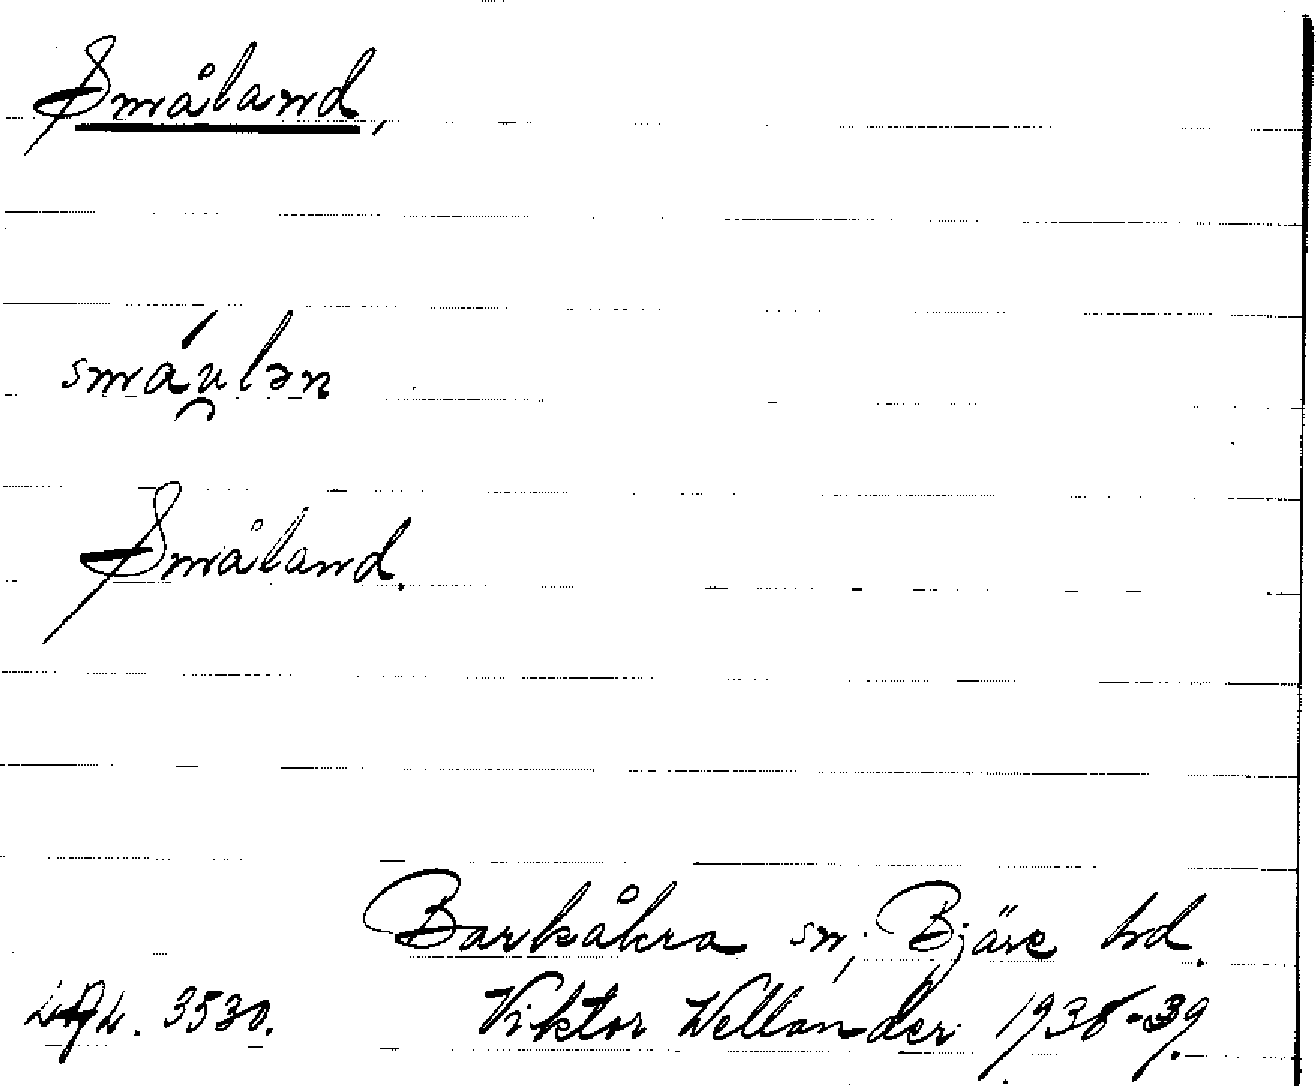 Småland,
smáu̯lən
Småland.
Barkåkra sn, Bjäre hd.
3530. Viktor Wellander 1938-39.